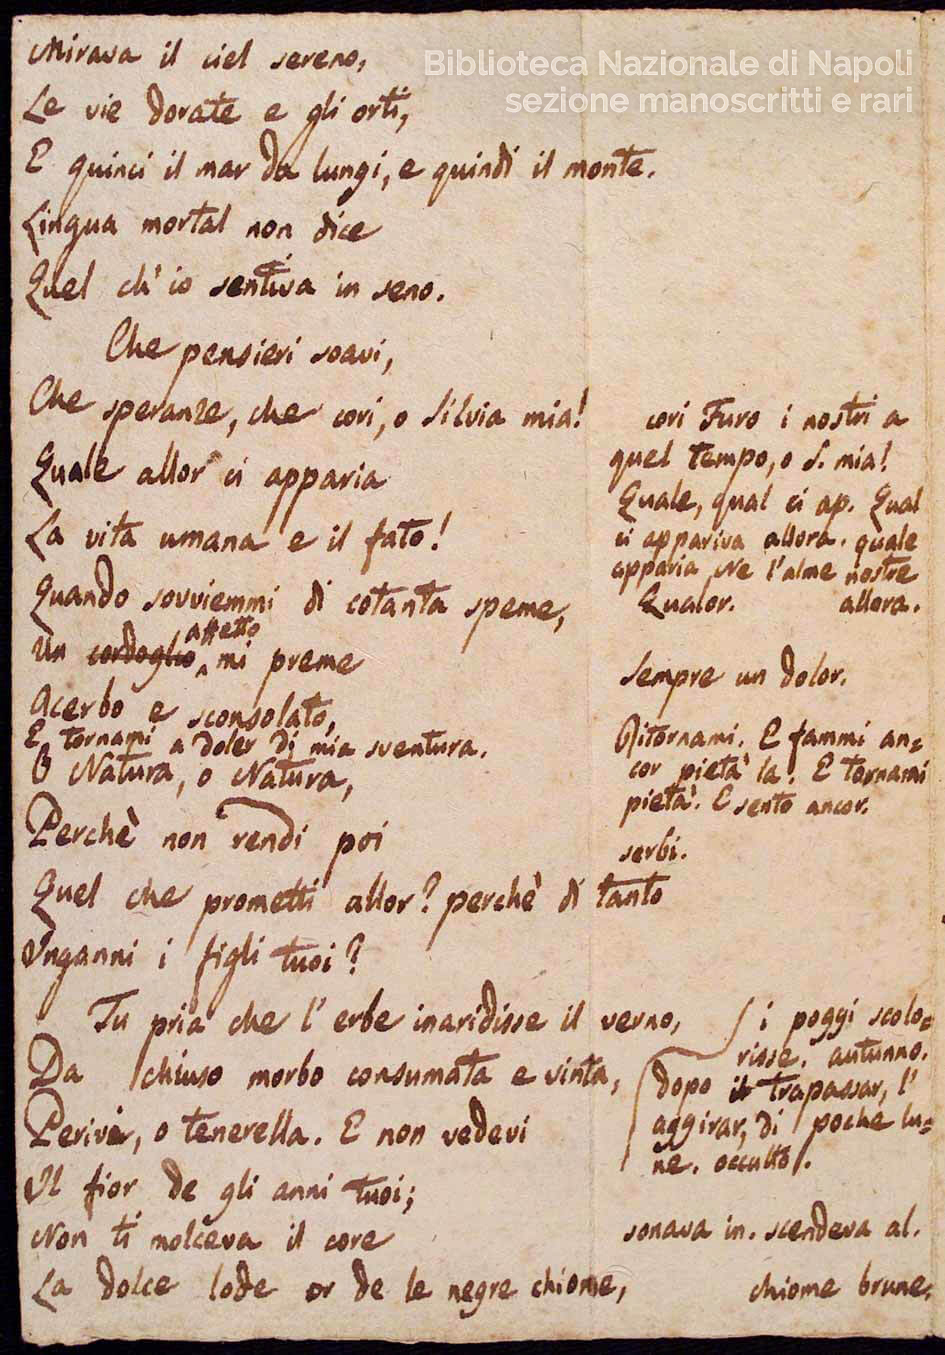 Biblioteca Nazionale di Napoli
sezione manoscritti e rari
Mirava il ciel sereno,
Le vie dorate e gli orti,
E quinci il mar da lungi, e quindi il monte.
Lingua mortal non dice
Quel ch' io sentiva in seno.
Che pensieri soavi,
Che speranze, che cori, o Silvia mia!
Quale allor ci apparia
La vita umana e il fato!
Quando sovviemmi di cotanta speme,
Un cordoglio affetto mi preme
Acerbo e sconsolato,
E tornami a doler di mia sventura.
O Natura, o Natura,
Perchè non rendi poi
Quel che prometti allor? perchè di tanto
Inganni i figli tuoi?
Tu pria che l' erbe inaridisse il verno,
Da chiuso morbo consumata e vinta,
Perivi, o tenerella. E non vedevi
Il fior de gli anni tuoi;
Non ti molceva il core
La dolce lode or de le negre chiome,
cori Furo i nostri a
quel tempo, o S. mia!
Quale, qual ci ap. Qual
ci appariva allora. quale
apparia Ne l'alme nostre
Qualor. allora.
Sempre un dolor.
Ritornami. E fammi an=
cor pietà la. E tornami
pietà. E sento ancor.
serbi.
i poggi scolo=
risse. autunno.
dopo il trapassar, l'
aggirar, di poche lu=
ne. occulto.
sonava in. scendeva al.
chiome brune.